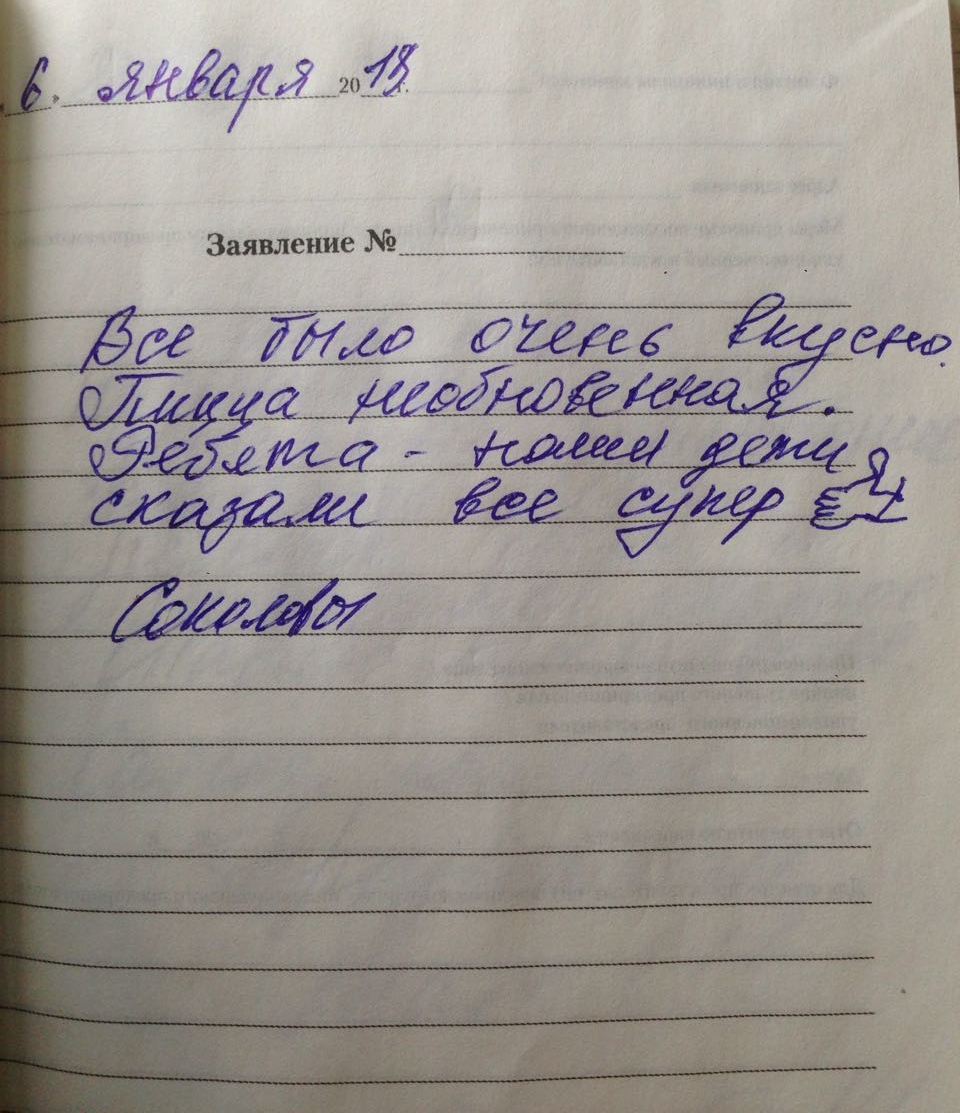 "6" января 2018г.
Заявление №
Все было очень вкусно.
Пицца необновенная.
Ребята - наши дети
сказали все супер
Соколовы